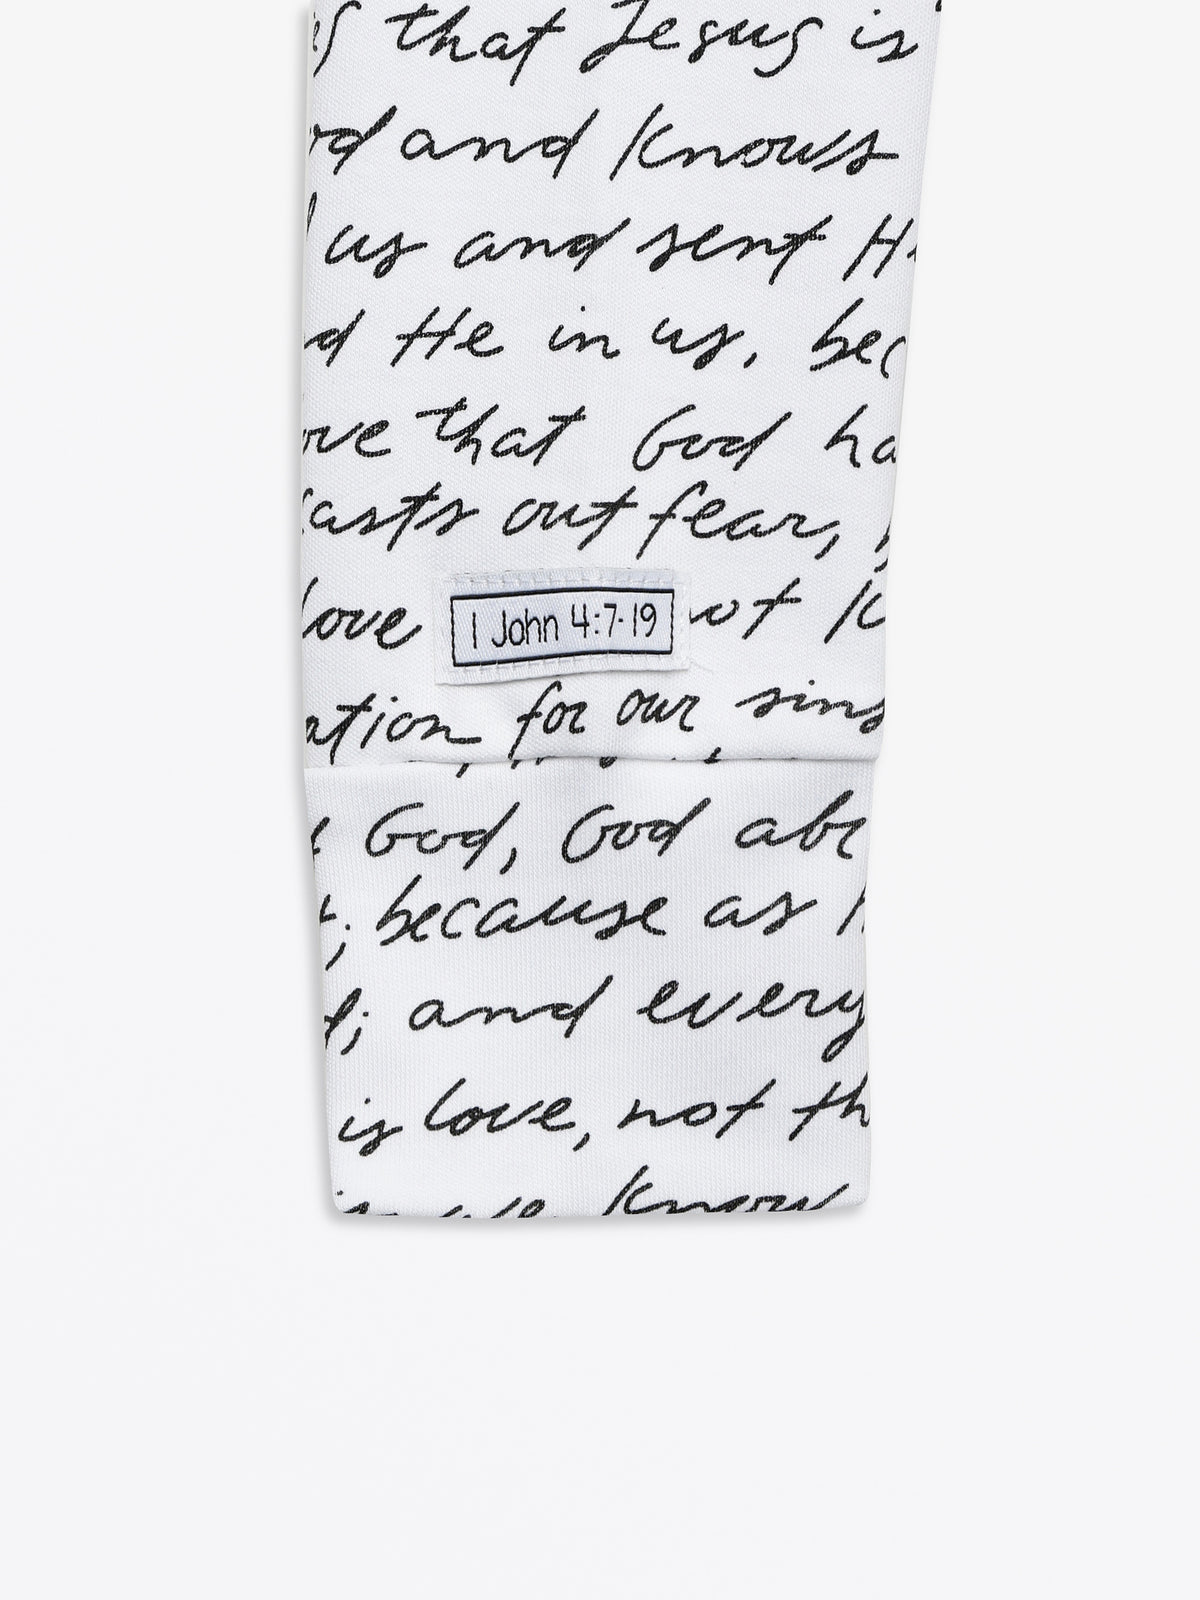 that Jesus is
and knows
us and sent
He in us,
that God
out fear,
love not
1 John 4:7-19
for our sins
God, God
; because as
; and every
is love, not
we know